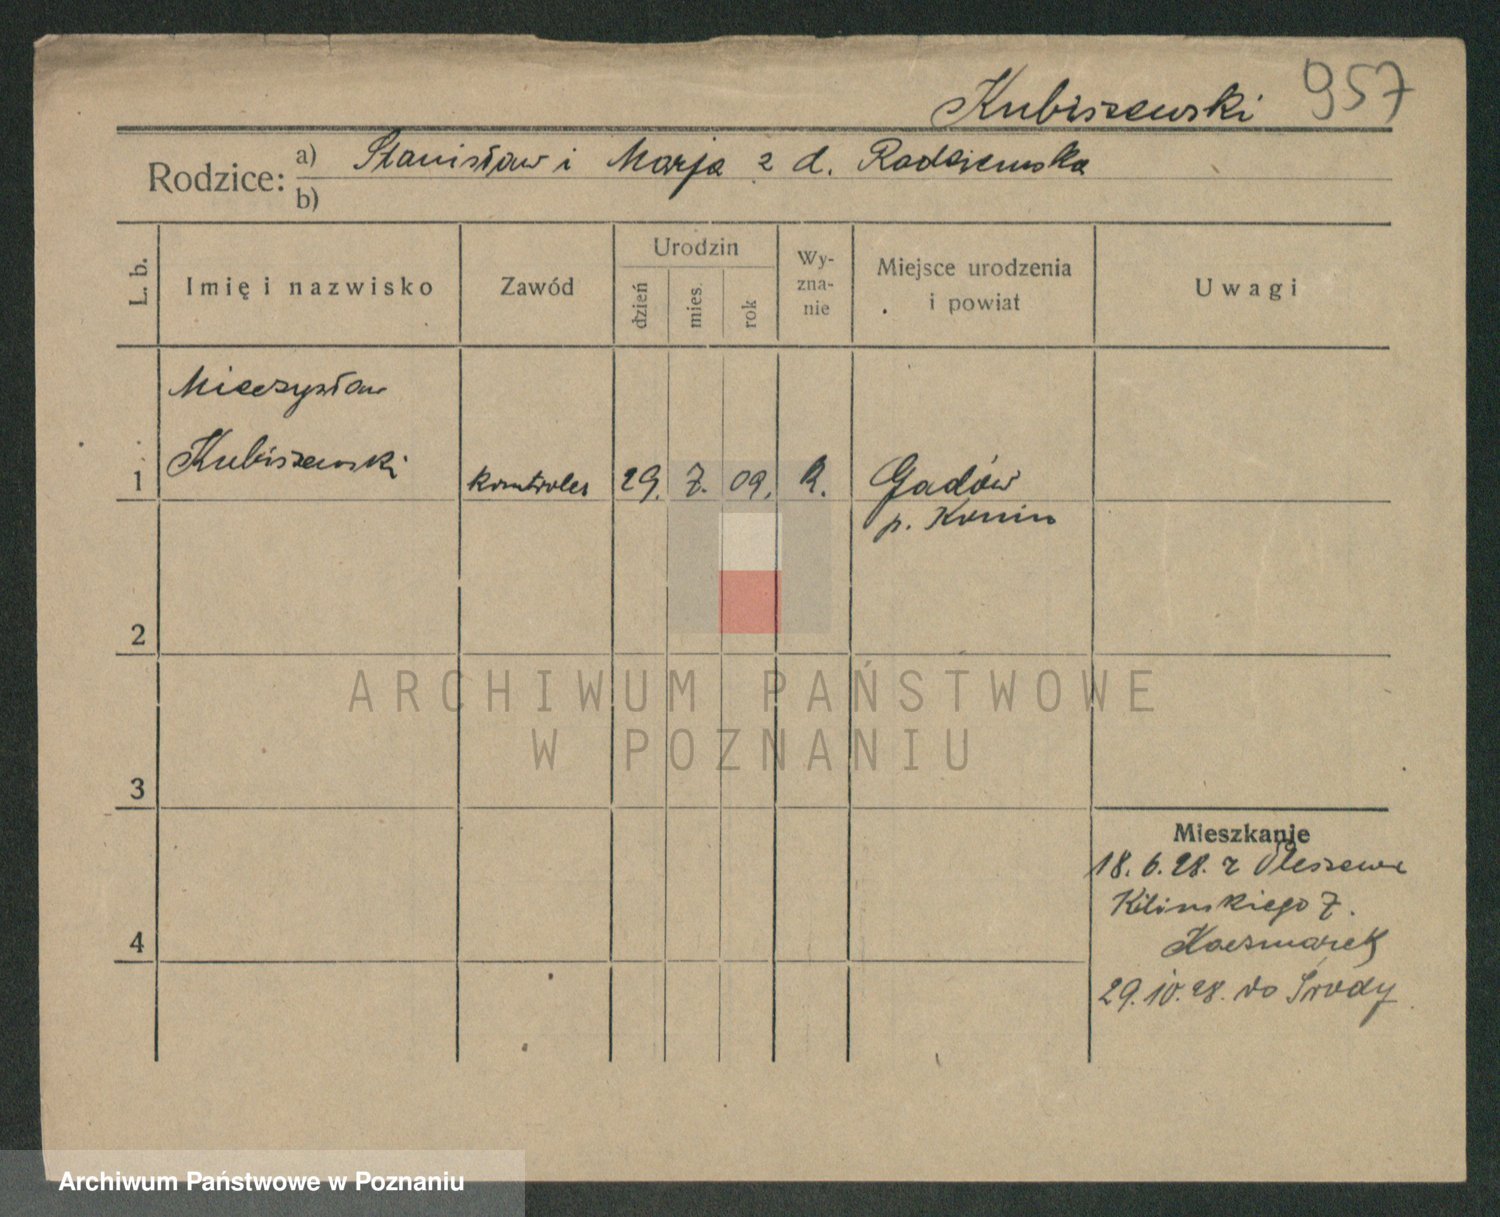 957
Kubiszewski
Rodzice: a) Stanisław i Marja z d. Radziewska
b)
L. b.
Imię i nazwisko
Zawód
Urodzin
dzień
mies.
rok
Wy-
zna-
nie
Miejsce urodzenia
i powiat
Uwagi
Mieczysław
1 Kubiszewski kontroler 29. 7. 09. R. Gadów
p. Konin
2
3
4
Mieszkanie
18.6.28. z Pleszewa
Kilinskiego 7.
Kaczmarek
29.10.28. do Środy
ARCHIWUM PAŃSTWOWE
W POZNANIU
Archiwum Państwowe w Poznaniu